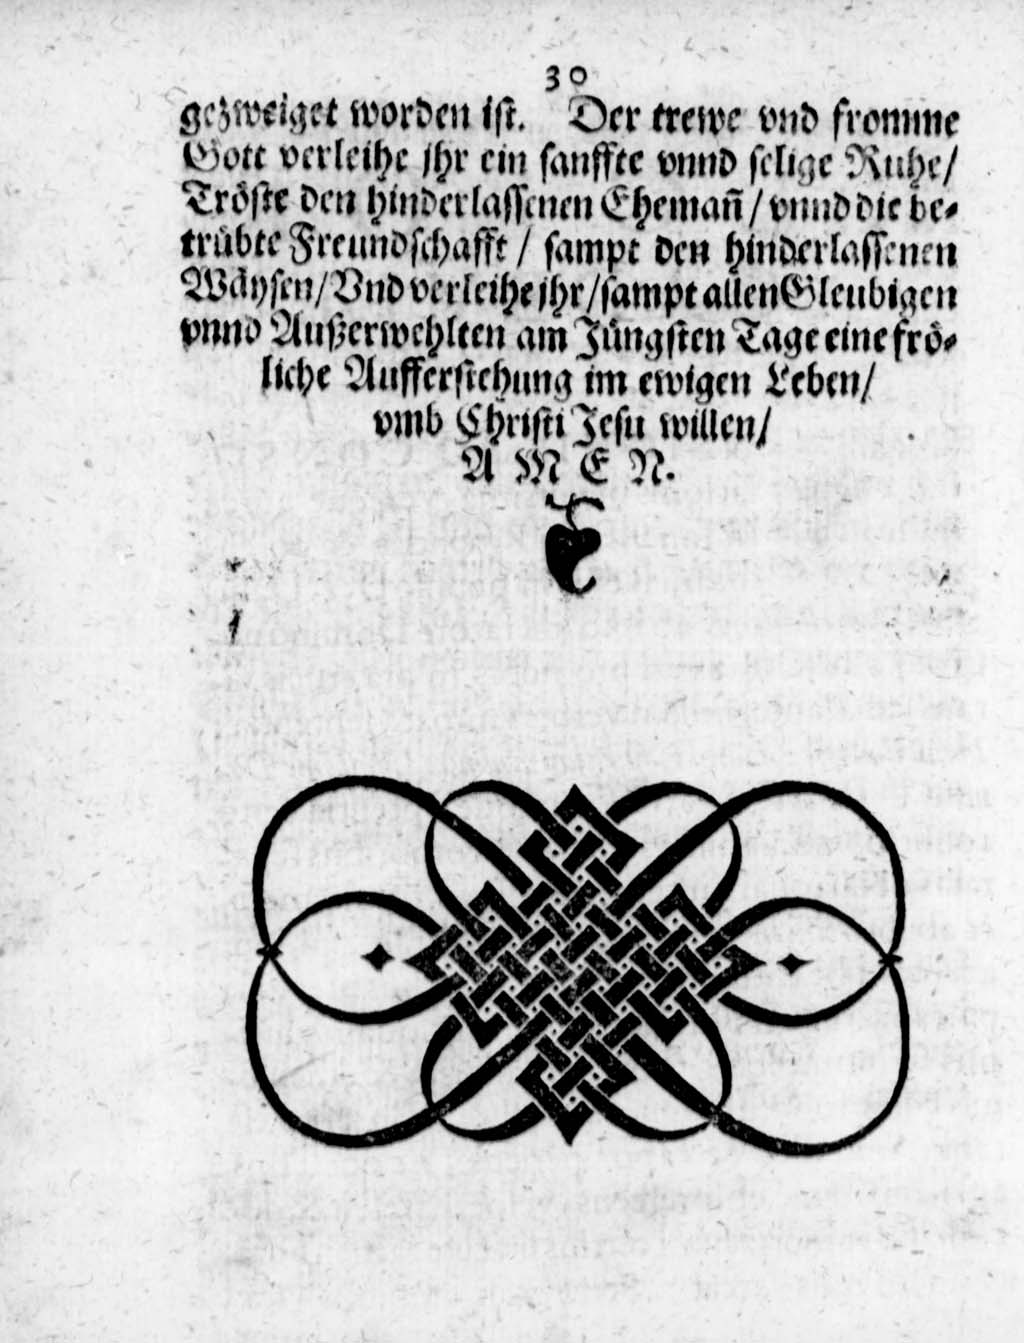 30
gezweiget worden ist. Der trewe vnd fromme
Gott verleihe jhr ein sanffte vnnd selige Ruhe/
Tröste den hinderlassenen Ehemañ/ vnnd die be-
trübte Freundschafft/ sampt den hinderlassenen
Wäysen/ Vnd verleihe jhr/ sampt allen Gleubigen
vnnd Außerwehlten am Jüngsten Tage eine frö-
liche Aufferstehung im ewigen Leben/
vmb Christi Jesu willen/
A M E N.